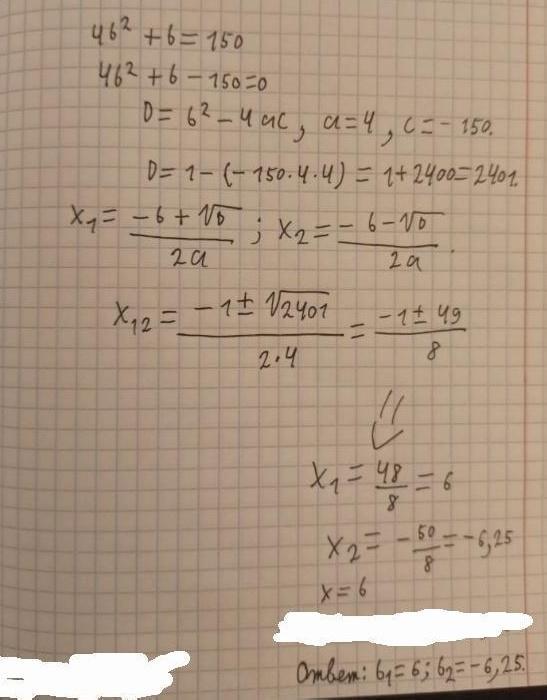 4b² + b = 150
4b² + b - 150 = 0
D = b² - 4ac, a = 4, c = -150.
D = 1 - (-150·4·4) = 1 + 2400 = 2401.
x₁ = (-b + √D)/(2a); x₂ = (-b - √D)/(2a).
x₁₂ = (-1 ± √2401)/(2·4) = (-1 ± 49)/8
⇓
x₁ = 48/8 = 6
x₂ = -50/8 = -6,25
x = 6
Ответ: b₁ = 6; b₂ = -6,25.